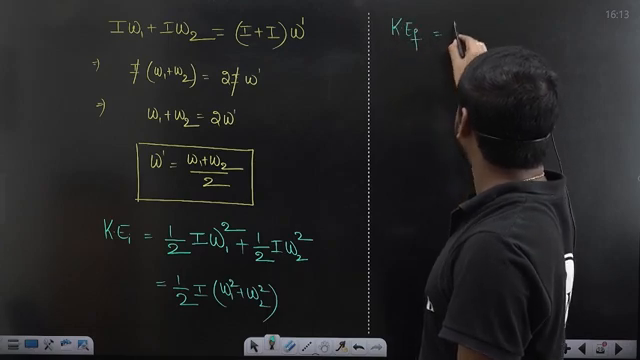 Iω₁ + Iω₂ = (I + I)ω'
⇒ I(ω₁+ω₂) = 2I ω'
⇒ ω₁+ω₂ = 2ω'
ω' = (ω₁+ω₂)/2
KE₁ = 1/2 Iω₁² + 1/2 Iω₂²
= 1/2 I (ω₁²+ω₂²)
KE_f =
16:13